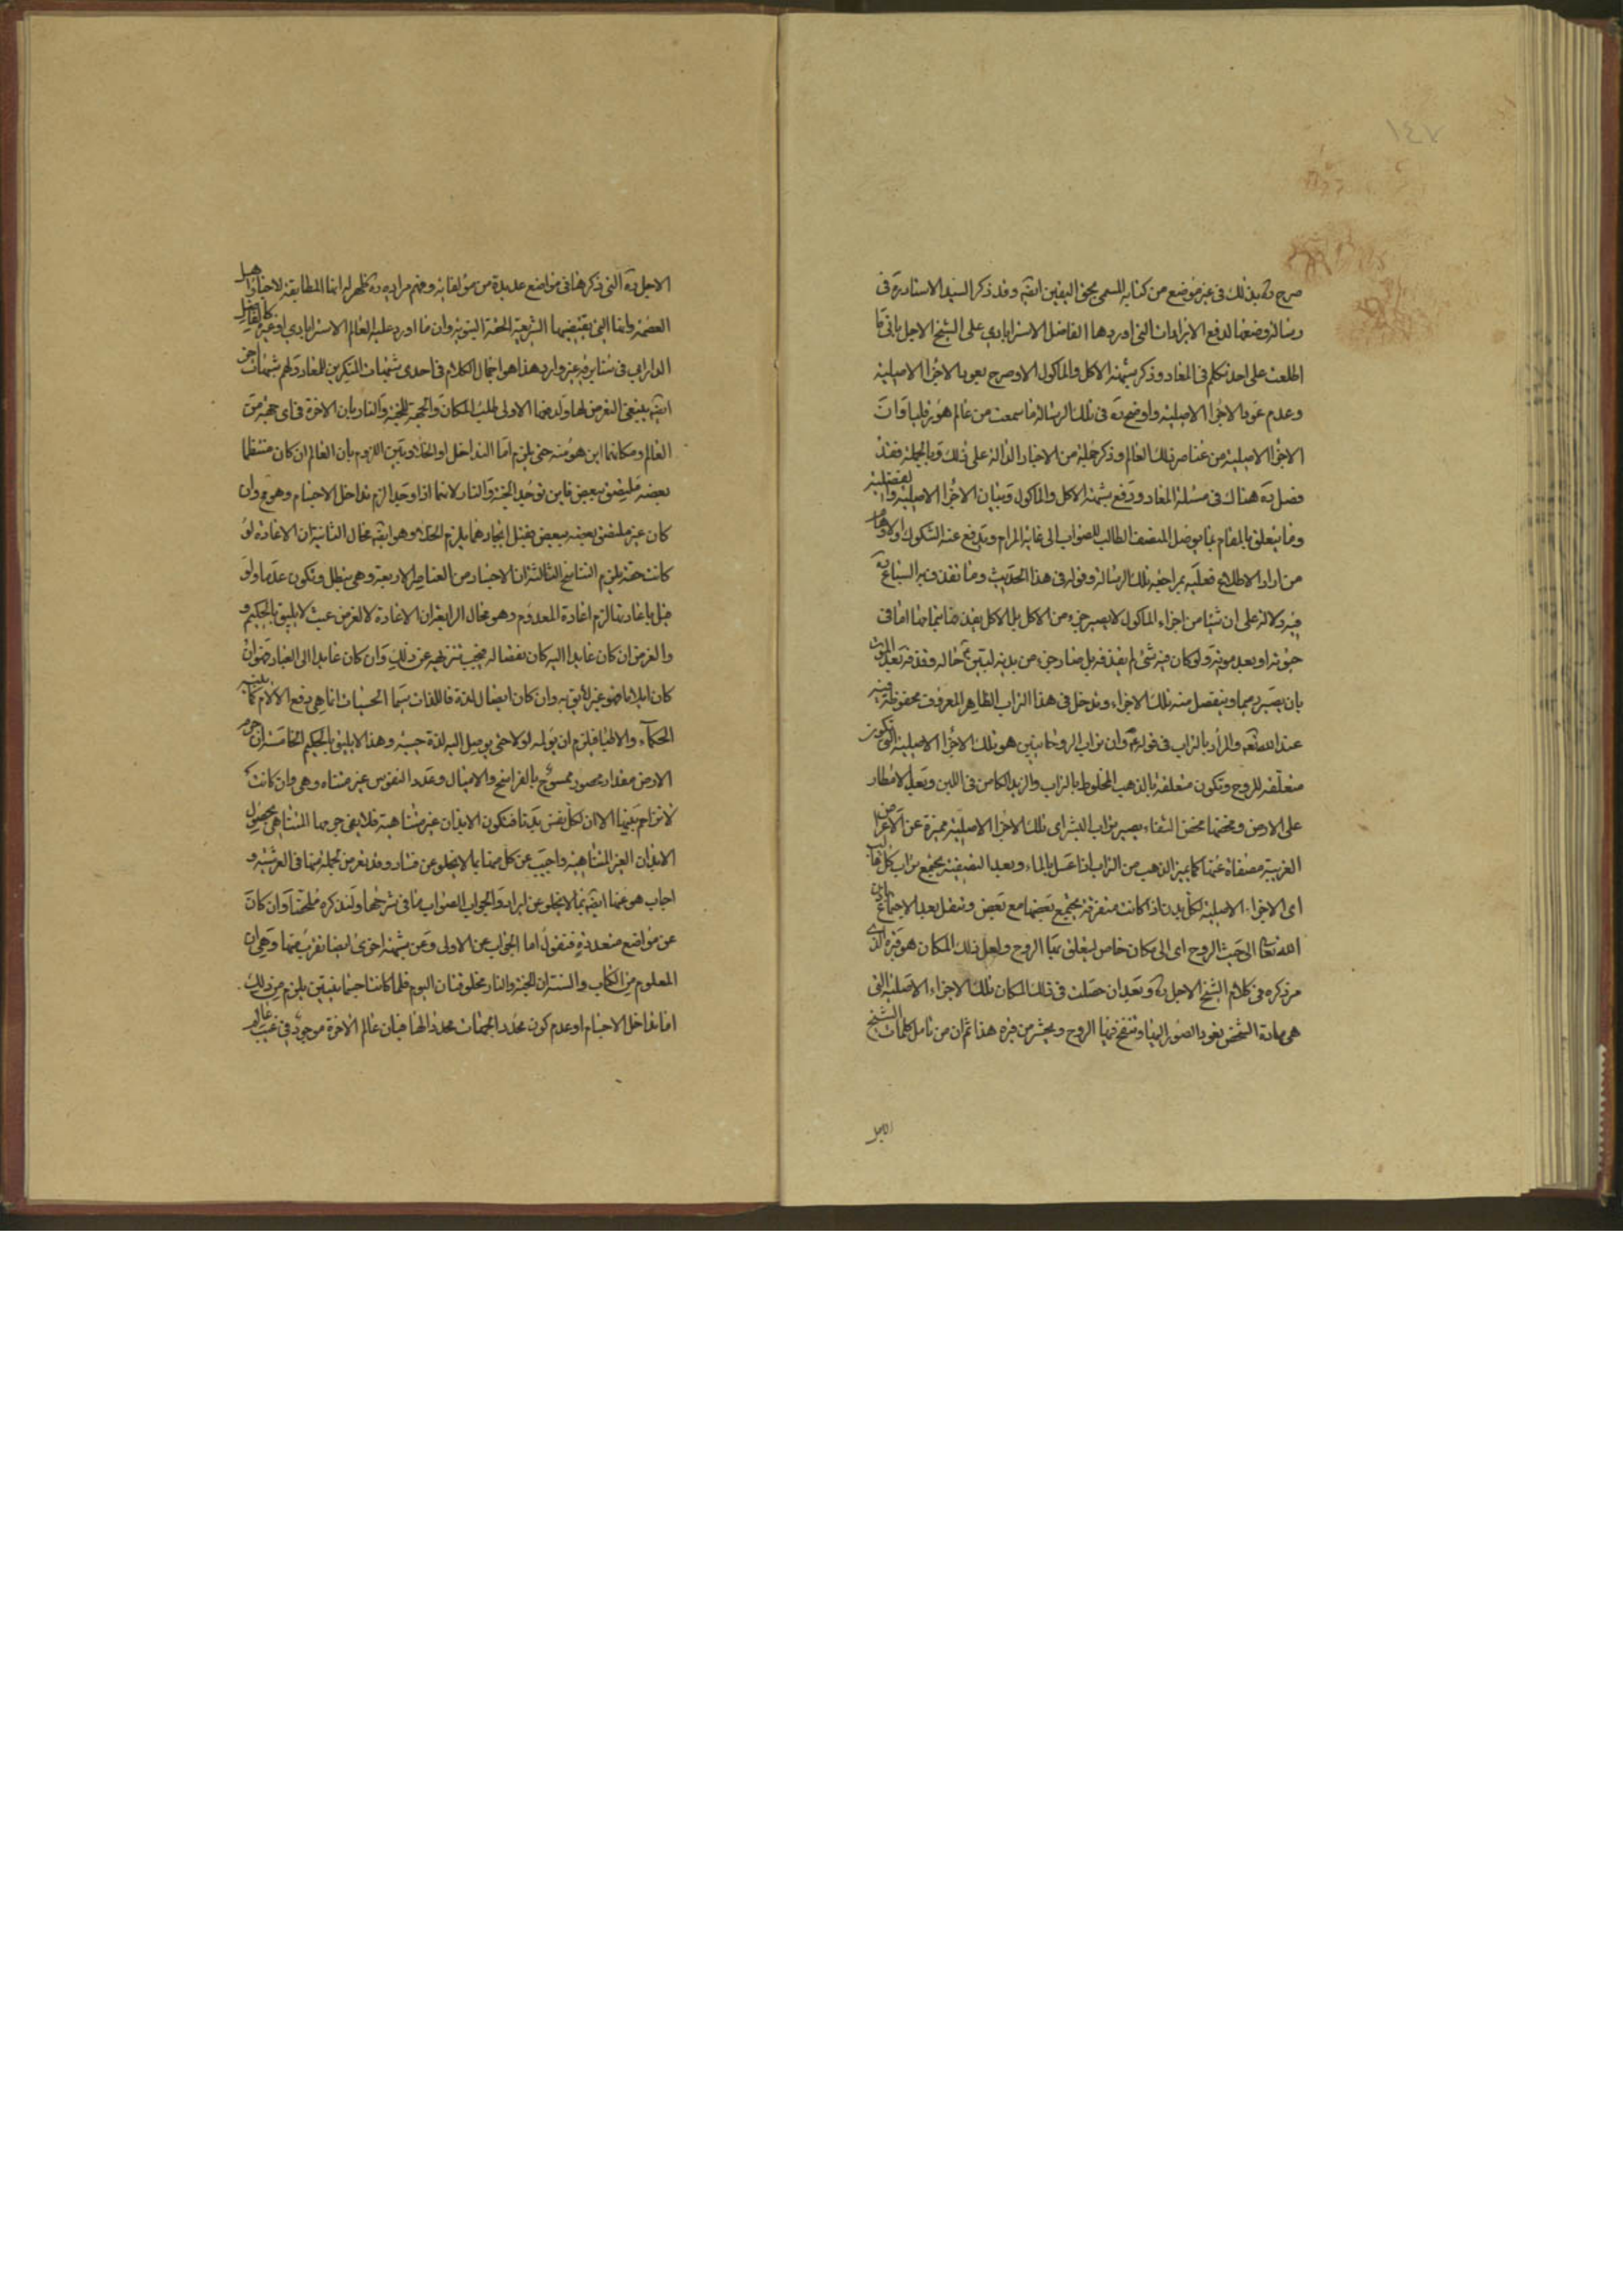 ١٤٧
صرح ره بذلك في غير موضع من كتابه المسمى بحق اليقين ايضه وقد ذكر السيد الاستاد ره في
رسالة وضعها لدفع الايرادات التي اوردها الفاضل الاسترابادي على الشيخ الاجل باني ما
اطلعت على احد تكلم في المعاد وذكر شبهة الاكل والماكول الا وصرح بعود الاجزا الاصلية
وعدم عود الاجزا الاصلية واوضح ره في تلك الرسالة ما سمعت من عالم هورقليا وان
الاجزا الاصلية من عناصر ذلك العالم وذكر جملة من الاخبار الدالة على ذلك وبالجملة فقد
فصل ره هناك في مسئلة المعاد ودفع شبهة الاكل والماكول وبيان الاجزا الاصلية والفضلية
وما يتعلق بالمقام بما يوصل المنصف الطالب للصواب الى غاية المرام ويدفع عنه الشكوك والاوهام
من اراد الاطلاع فعليه بمراجعة تلك الرسالة وقوله في هذا الحديث وما تقذف به السباع
فيه دلالة على ان شيئا من اجزاء الماكول لا يصير جزء من الاكل بل الاكل يقذفها بتمامها اما في
حيوته او بعد موته ولو كان فيه شئ لم يقذفه بل صار جزء من بدنه لبين ع حاله وقذفه بعد الموت
بان يصير رميما وينفصل منه تلك الاجزاء وتدخل في هذا التراب الظاهر المعروف محفوظة فيه
عند الله تعه والمراد بالتراب في قوله ع وان تراب الروحانيين هو تلك الاجزا الاصلية التي تكون
متعلقة للروح وتكون متعلقة بالذهب المخلوط بالتراب والزبد الكامن في اللبن وبعد الامطار
على الارض ومخضها مخض السقاء يصير تراب البشر اي تلك الاجزا الاصلية مميزة عن الاعراض
الغريبة مصفاة عنها كما يميز الذهب من التراب اذا غسل بالماء وبعد التصفية يجتمع تراب كل قالب
اي الاجزاء الاصلية لكل بدن اذا كانت متفرقة يجتمع بعضها مع بعض وتنقل بعد الاجتماع باذن
الله تعا الى حيث الروح اي الى مكان خاص ليتعلق بها الروح ولعل ذلك المكان هو قبره الذي
مر ذكره في كلام الشيخ الاجل ره وبعد ان حصلت في ذلك المكان تلك الاجزاء الاصلية التي
هي مادة الشخص يعود الصور اليها وتنفخ فيها الروح ويحشر من قبره هذا ثم ان من تامل كلمات الشيخ
الاجل
الاجل ره التي ذكرها في مواضع عديدة من مؤلفاته وفهم مراده ره ظهر له انها المطابقة لاخبار اهل
العصمة وانها التي يقتضيها الشريعة الحقة النبوية وان ما اورد عليه العالم الاسترابادي او غيره كالفاضل
الدارابي في غير وارد هذا هو اجمال الكلام في احدى شبهات المنكرين للمعاد ولهم شبهات اخر
ايضه ينبغي التعرض لها ولدفعها الاولى طلب المكان والجهة للجنة والنار بان الاخرة في اي جهة من
العالم ومكانها اين هو منه حتى يلزم اما التداخل او الخلاء وبين اللزوم بان العالم ان كان منتظما
بعضه ملتصق ببعض فاين توجد الجنة والنار لانهما اذا وجدا لزم تداخل الاجسام وهو مح وان
كان غير ملتصق بعضه ببعض فقبل ايجادهما يلزم الخلاء وهو ايضه محال الثانية ان الاعادة لو
كانت حقة يلزم التناسخ الثالثة ان الاجساد من العناصر الاربعة وهي تبطل وتكون عدما ولو
قيل باعادتها لزم اعادة المعدوم وهو محال الرابعة ان الاعادة لا لغرض عبث لا يليق بالحكيم و
والغرض ان كان عايدا اليه كان نقصا له فيجب تنزيهه عن ذلك وان كان عايدا الى العباد فهو ان
كان ايلاما فهو غير لايق به وان كان ايصال لذة فاللذات سيما الحسيات انما هي دفع الالام كما بينه
الحكماء والاطبا فيلزم ان يؤلمه اولا حتى يوصل اليه لذة حسية وهذا لا يليق بالحكيم الخامسة ان جرم
الارض مقدار محصور ممسوح بالفراسخ والاميال وعدد النفوس غير متناه وهي وان كانت
لا تزاحم بينها الا ان لكل نفس بدنا فتكون الابدان غير متناهية فلا يفي جرمها المتناهي بحصول
الابدان الغير المتناهية واجيب عن كل منها بما لا يخلو عن فساد وقد تعرض لجملة منها في العرشية و
اجاب هو عنها ايضه بما لا يخلو عن ايراد والجواب الصواب ما في شرحها ولنذكره ملخصا وان كان
عن مواضع متعددة فنقول اما الجواب عن الاولى وعن شبهة اخرى ايضا تقرب منها وهي ان
المعلوم من الكتاب والسنة ان الجنة والنار مخلوقتان اليوم فلما كانتا جسمانيتين يلزم من ذلك
اما تداخل الاجسام او عدم كون محدد الجهات محددا لها فبان عالم الاخرة موجود في غيب عالم